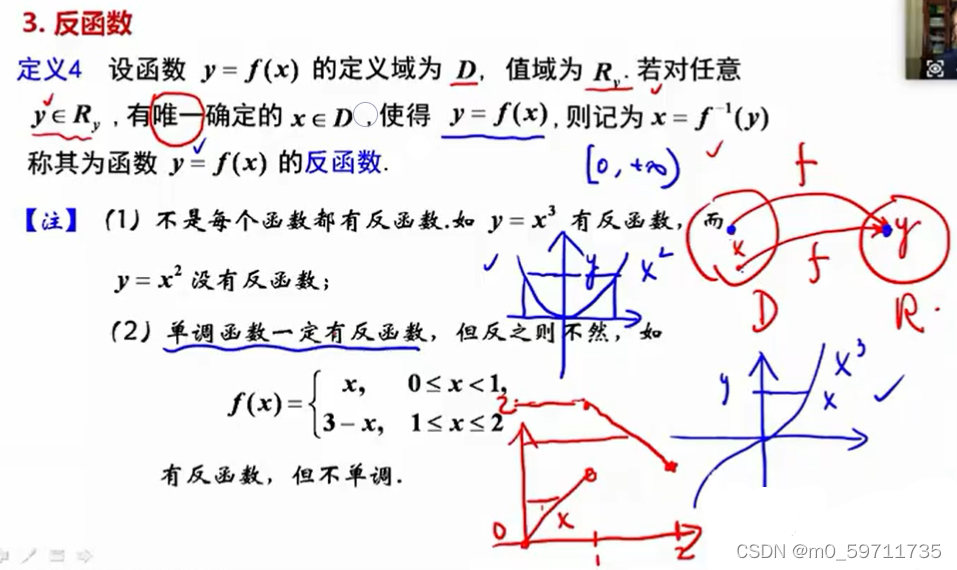 3. 反函数
定义4 设函数 y = f(x) 的定义域为 D, 值域为 R_y. 若对任意
y ∈ R_y , 有唯一确定的 x ∈ D , 使得 y = f(x), 则记为 x = f^{-1}(y)
称其为函数 y = f(x) 的反函数.
[0, +∞)
f
【注】 (1) 不是每个函数都有反函数.如 y = x^3 有反函数, 而
x
f
y
y
x^2
y = x^2 没有反函数;
D
R.
(2) 单调函数一定有反函数, 但反之则不然, 如
x^3
y
x
f(x) = { x, 0 ≤ x < 1,
3 − x, 1 ≤ x ≤ 2
2
有反函数, 但不单调.
x
0
1
2
CSDN @m0_59711735